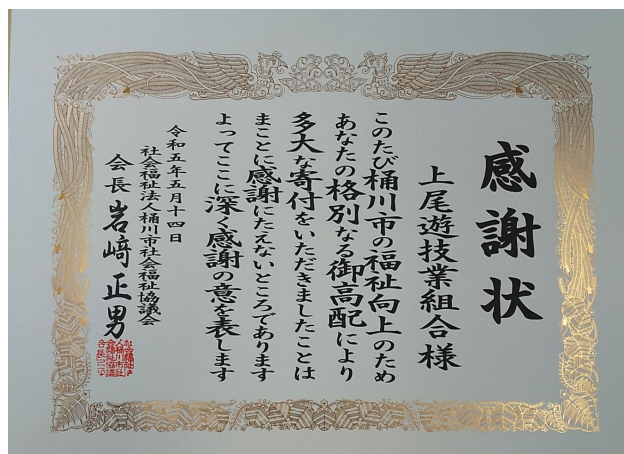 感謝状
上尾遊技業組合様
このたび桶川市の福祉向上のため
あなたの格別なる御高配により
多大な寄付をいただきましたことは
まことに感謝にたえないところであります
よってここに深く感謝の意を表します
令和五年五月十四日
社会福祉法人桶川市社会福祉協議会
会長 岩﨑正男